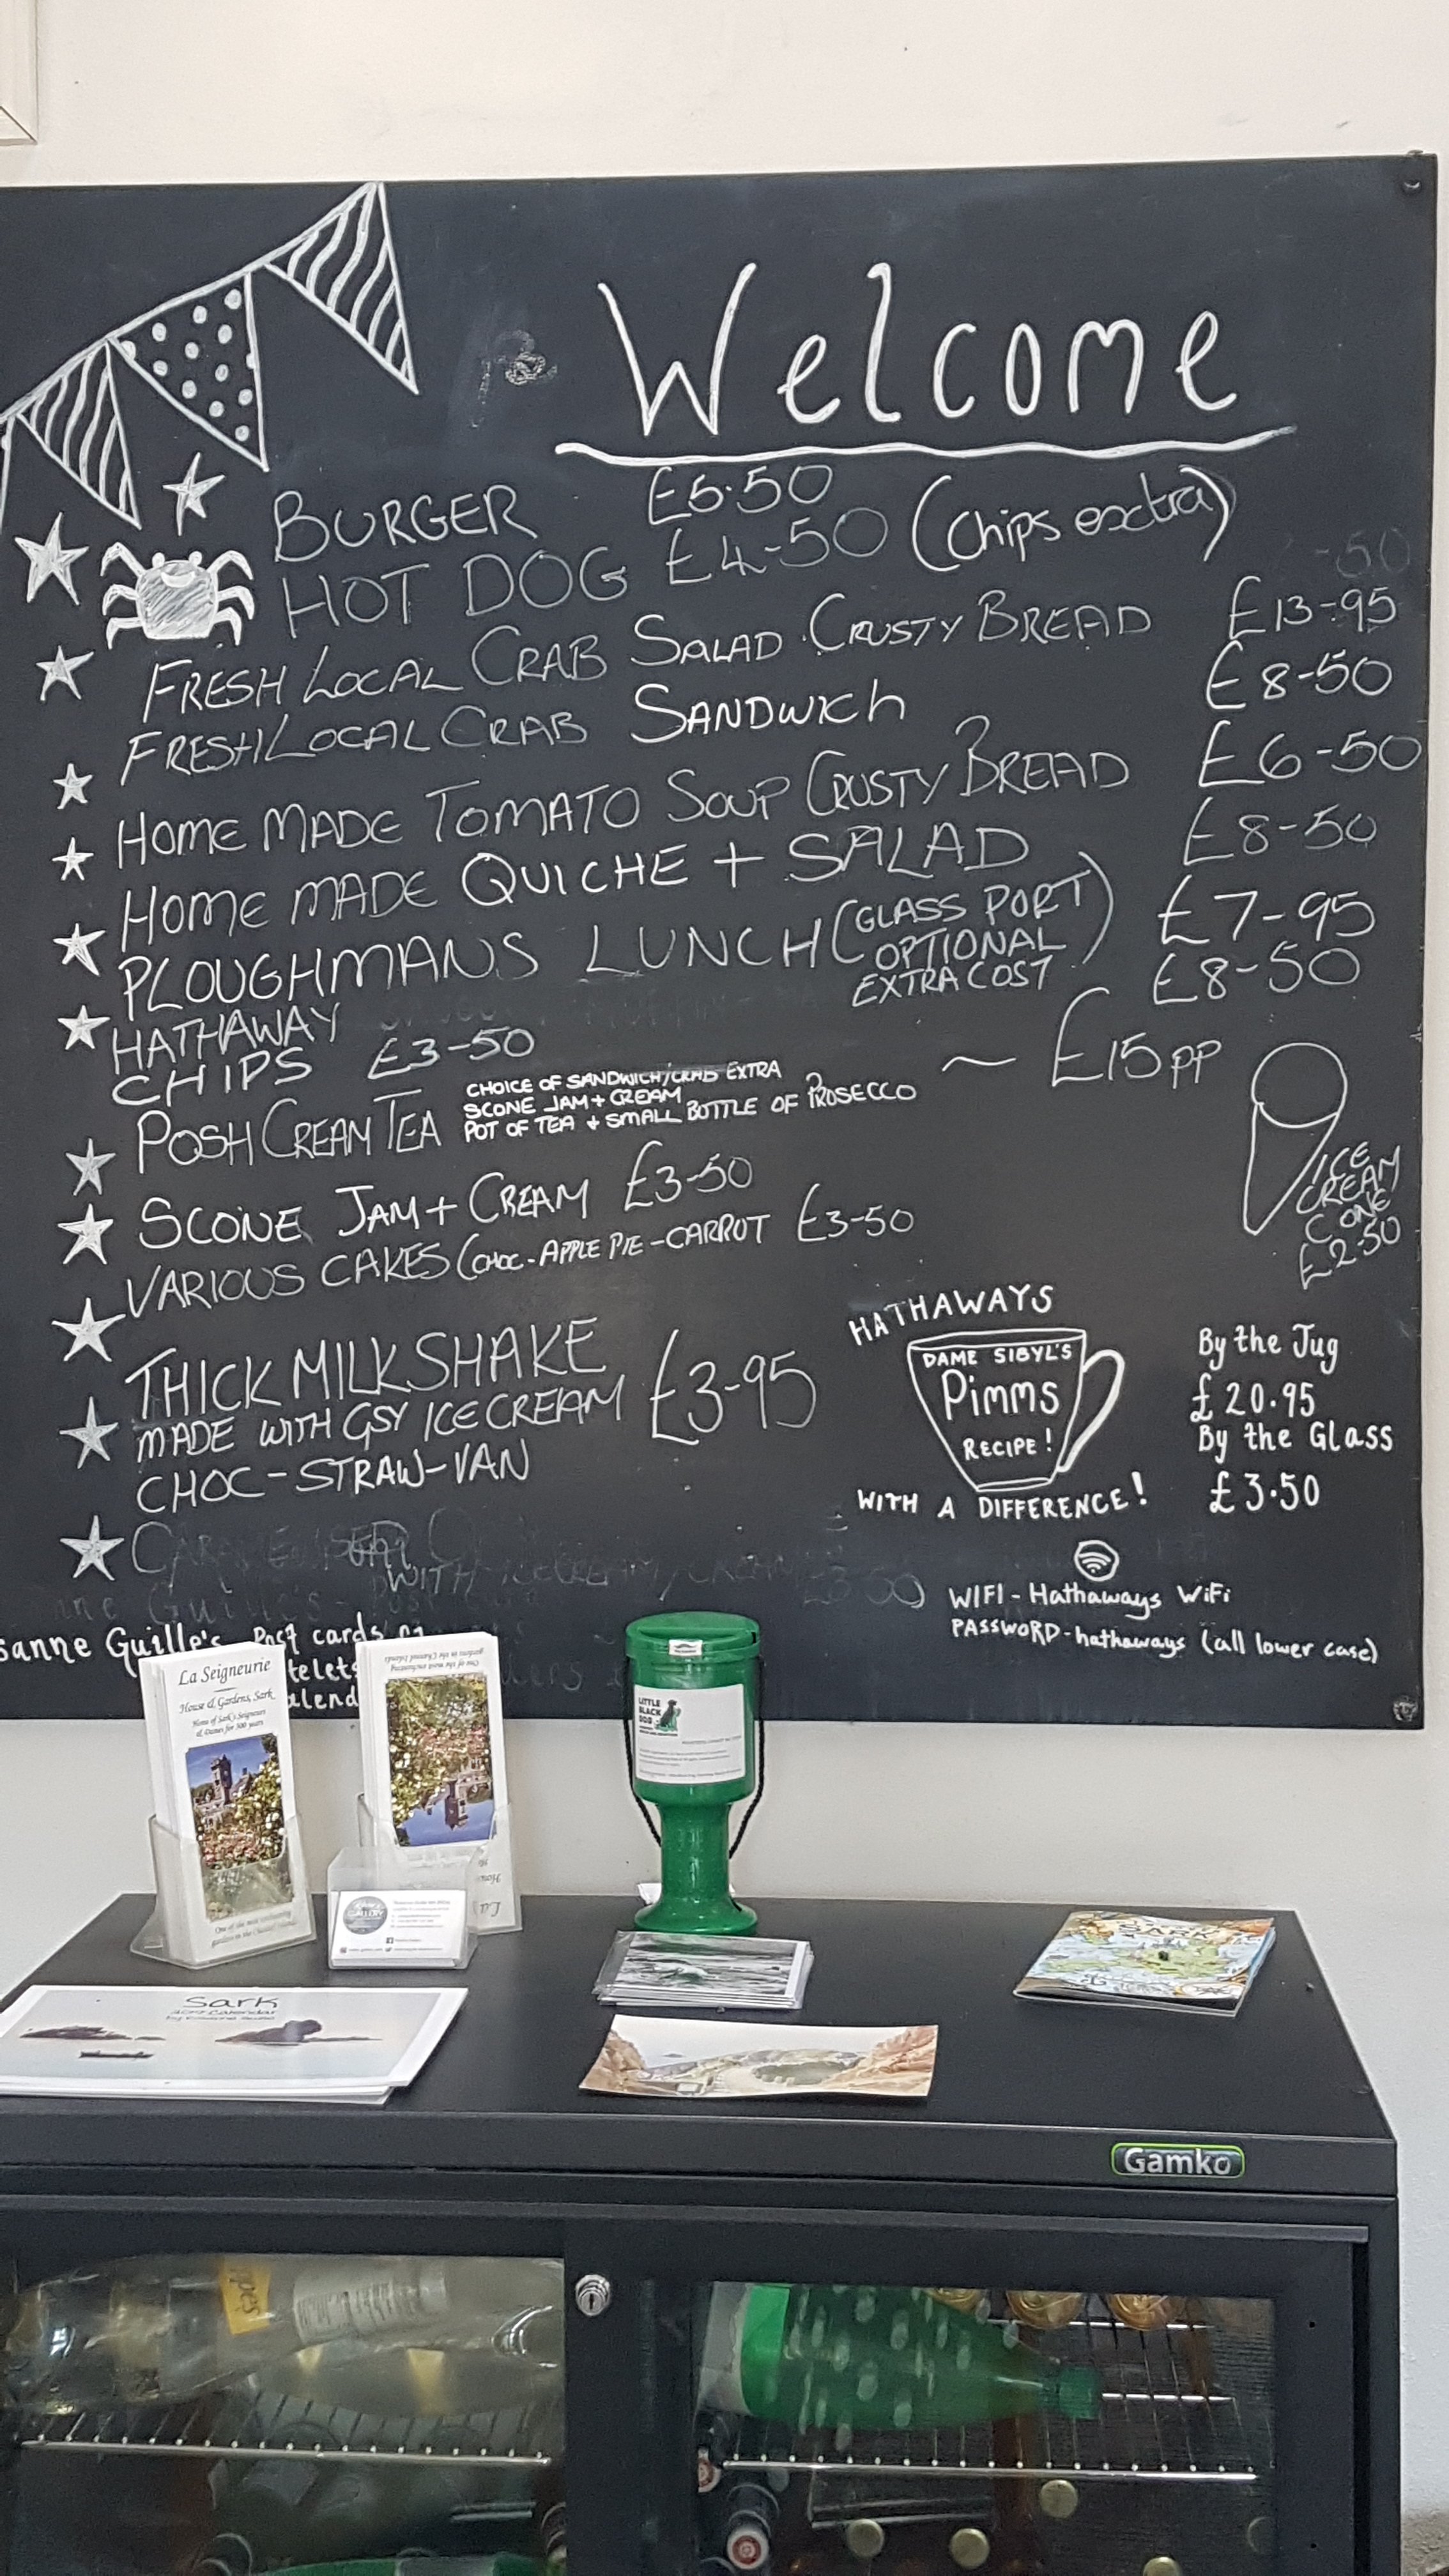 Welcome
BURGER £5.50
HOT DOG £4-50 (Chips extra)
FRESH LOCAL CRAB SALAD CRUSTY BREAD £13-95
FRESH LOCAL CRAB SANDWICH £8-50
HOME MADE TOMATO SOUP CRUSTY BREAD £6-50
HOME MADE QUICHE + SALAD £8-50
PLOUGHMANS LUNCH (GLASS PORT £7-95
OPTIONAL
EXTRA COST) £8-50
HATHAWAY
CHIPS £3-50
POSH CREAM TEA ~ £15pp
CHOICE OF SANDWICH/CRAB EXTRA
SCONE JAM + CREAM
POT OF TEA + SMALL BOTTLE OF PROSECCO
SCONE JAM + CREAM £3-50
VARIOUS CAKES (CHOC-APPLE PIE-CARROT £3-50
ICE
CREAM
CONE
£2.50
THICK MILKSHAKE
MADE WITH GSY ICE CREAM £3-95
CHOC-STRAW-VAN
HATHAWAYS
DAME SIBYL'S
Pimms
RECIPE!
WITH A DIFFERENCE!
By the Jug
£20.95
By the Glass
£3.50
WITH
WIFI - Hathaways WiFi
PASSWORD - hathaways (all lower case)
sanne Guille's Post cards
La Seigneurie
House & Gardens, Sark
Home of Sark's Seigneurs
& Dames for 300 years
One of the most enchanting
gardens in the Channel Islands
One of the most enchanting
gardens in the Channel Islands
LITTLE
BLACK
DOG
GALLERY
Sark
Calendar
SARK
Gamko